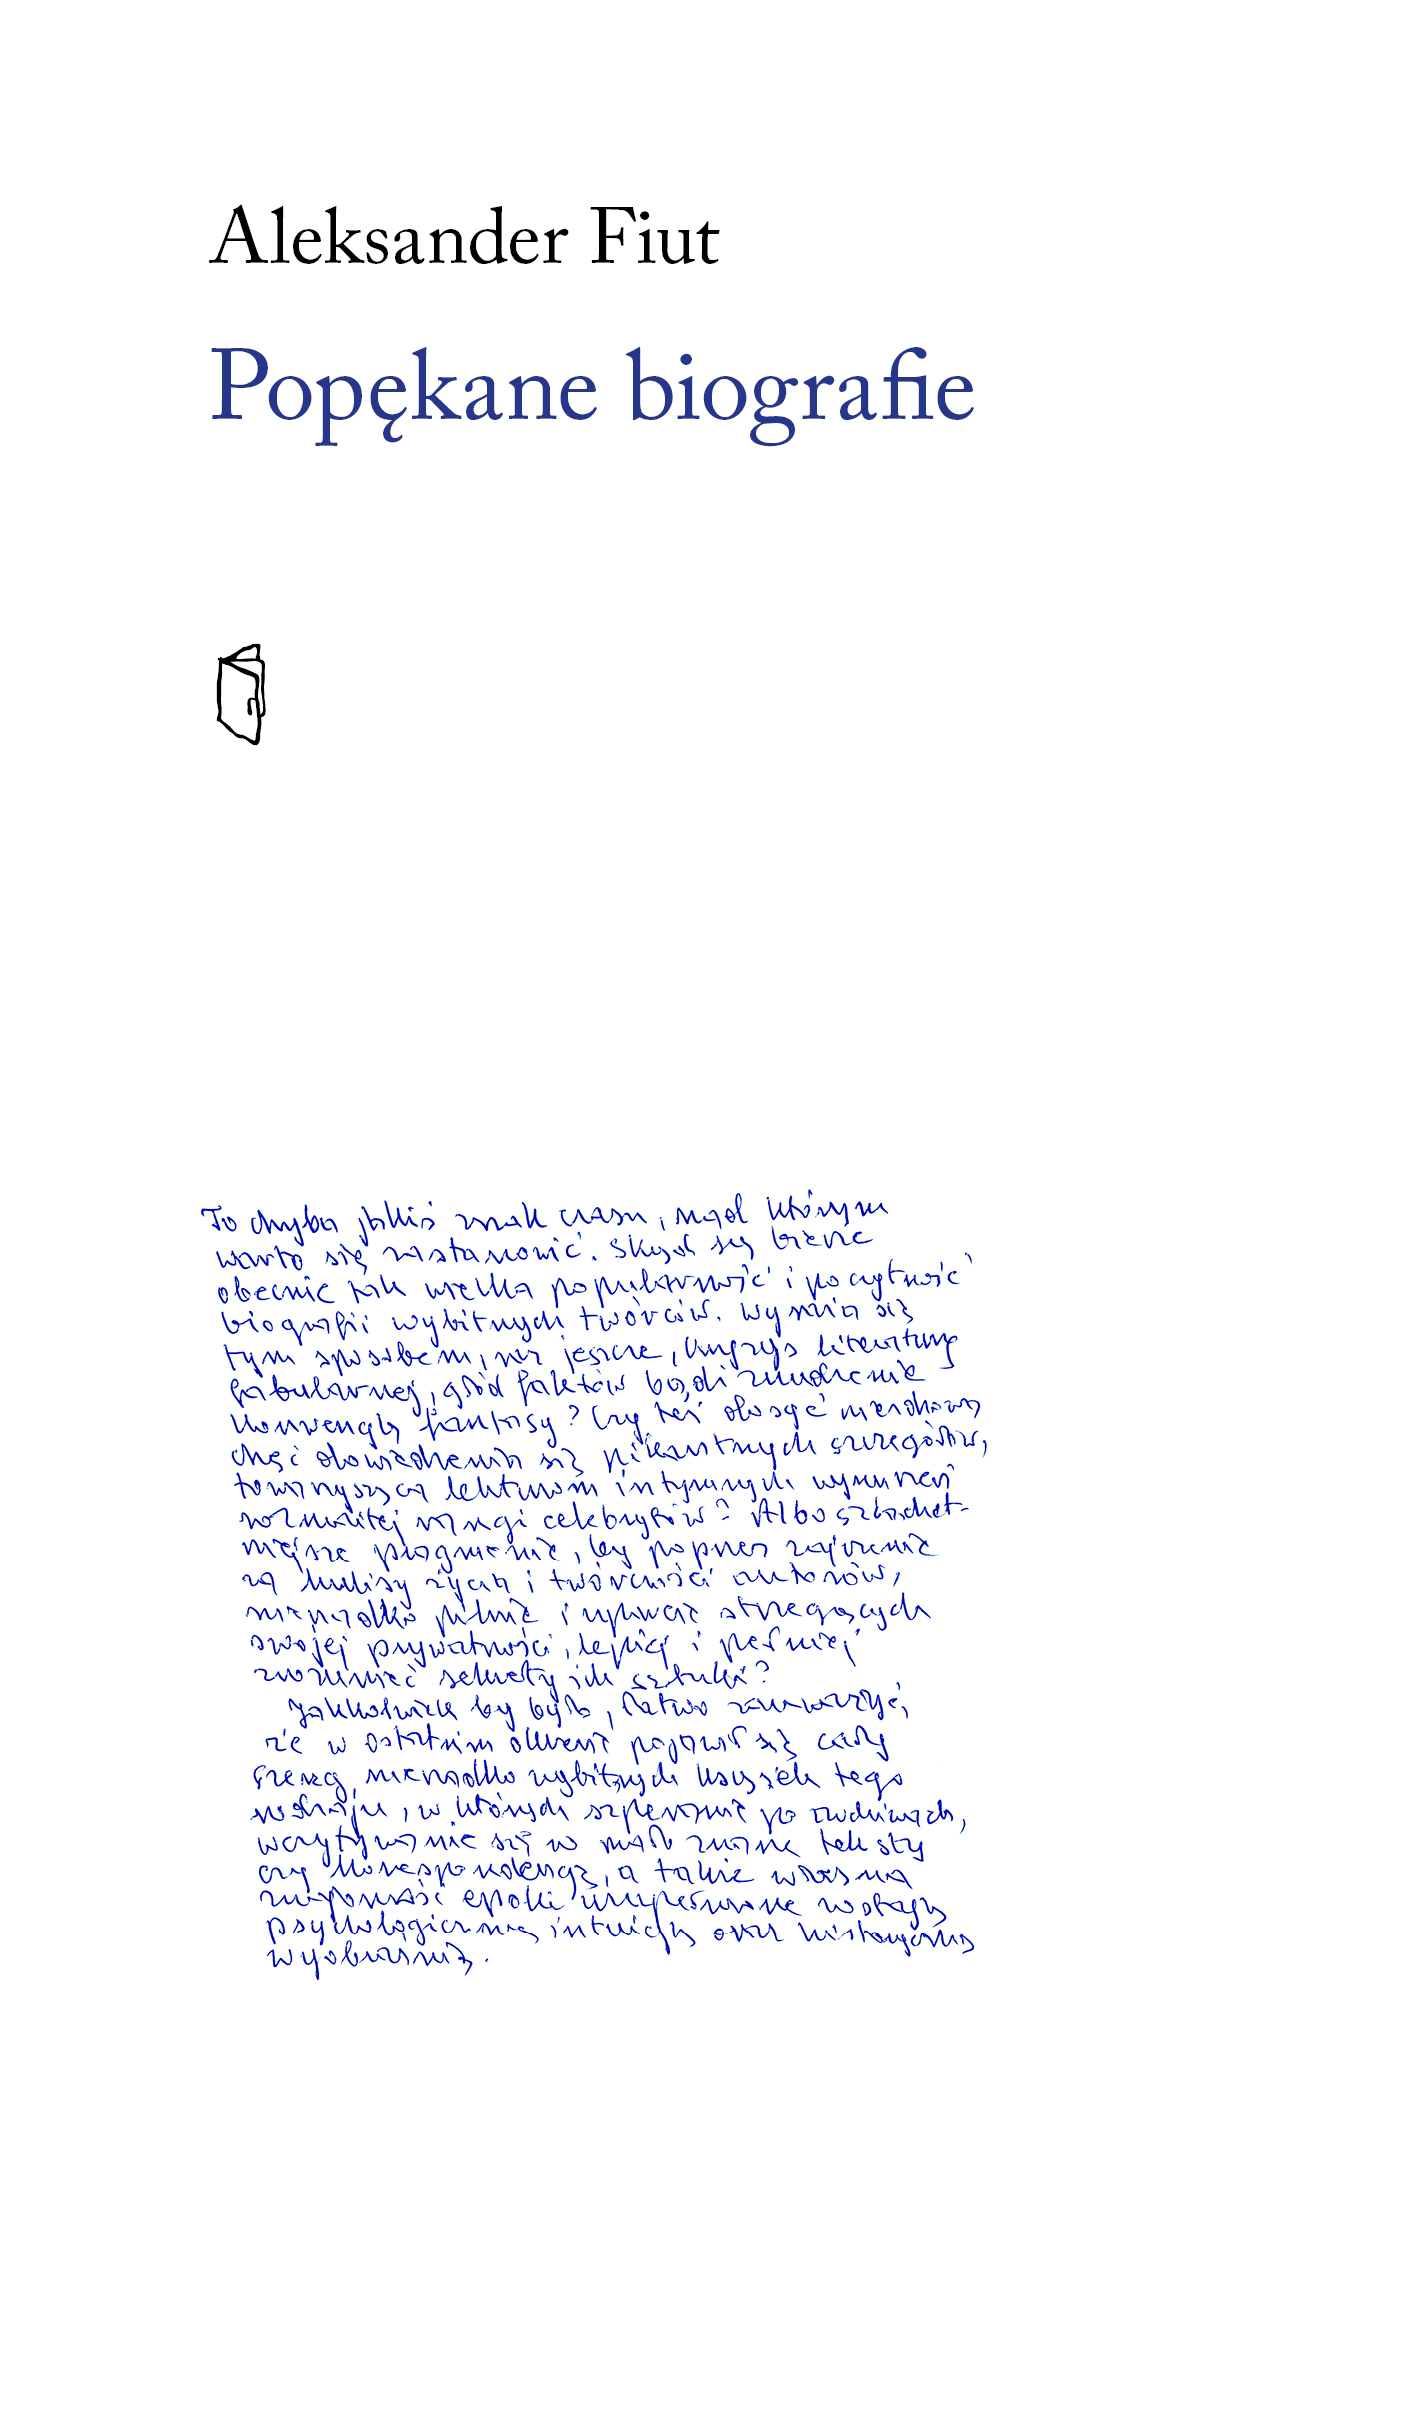 Aleksander Fiut
Popękane biografie
To chyba jakiś znak czasu, nad którym
warto się zastanowić. Skąd się bierze
obecnie tak wielka popularność i poczytność
biografii wybitnych twórców. Wyraża się
tym sposobem, raz jeszcze, kryzys literatury
fabularnej, głód faktów bądź znudzenie
konwencją fantasy? Czy też dosyć nieszlachetna
chęć dowiedzenia się pikantnych szczegółów,
towarzysząca lekturom intymnych wynurzeń
rozmaitej rangi celebrytów? Albo szlachet-
niejsze pragnienie, by poprzez zajrzenie
za kulisy życia i twórczości autorów,
nierzadko pilnie i uparcie strzegących
swojej prywatności, lepiej i pełniej
zrozumieć sekrety ich sztuki?
Jakkolwiek by było, łatwo zauważyć,
że w ostatnim okresie pojawił się cały
szereg nierzadko wybitnych książek tego
rodzaju, w których szperanie po archiwach,
wczytywanie się w mało znane teksty
czy korespondencję, a także własna
znajomość epoki uzupełniane zostają
psychologiczną intuicją oraz historyczną
wyobraźnią.